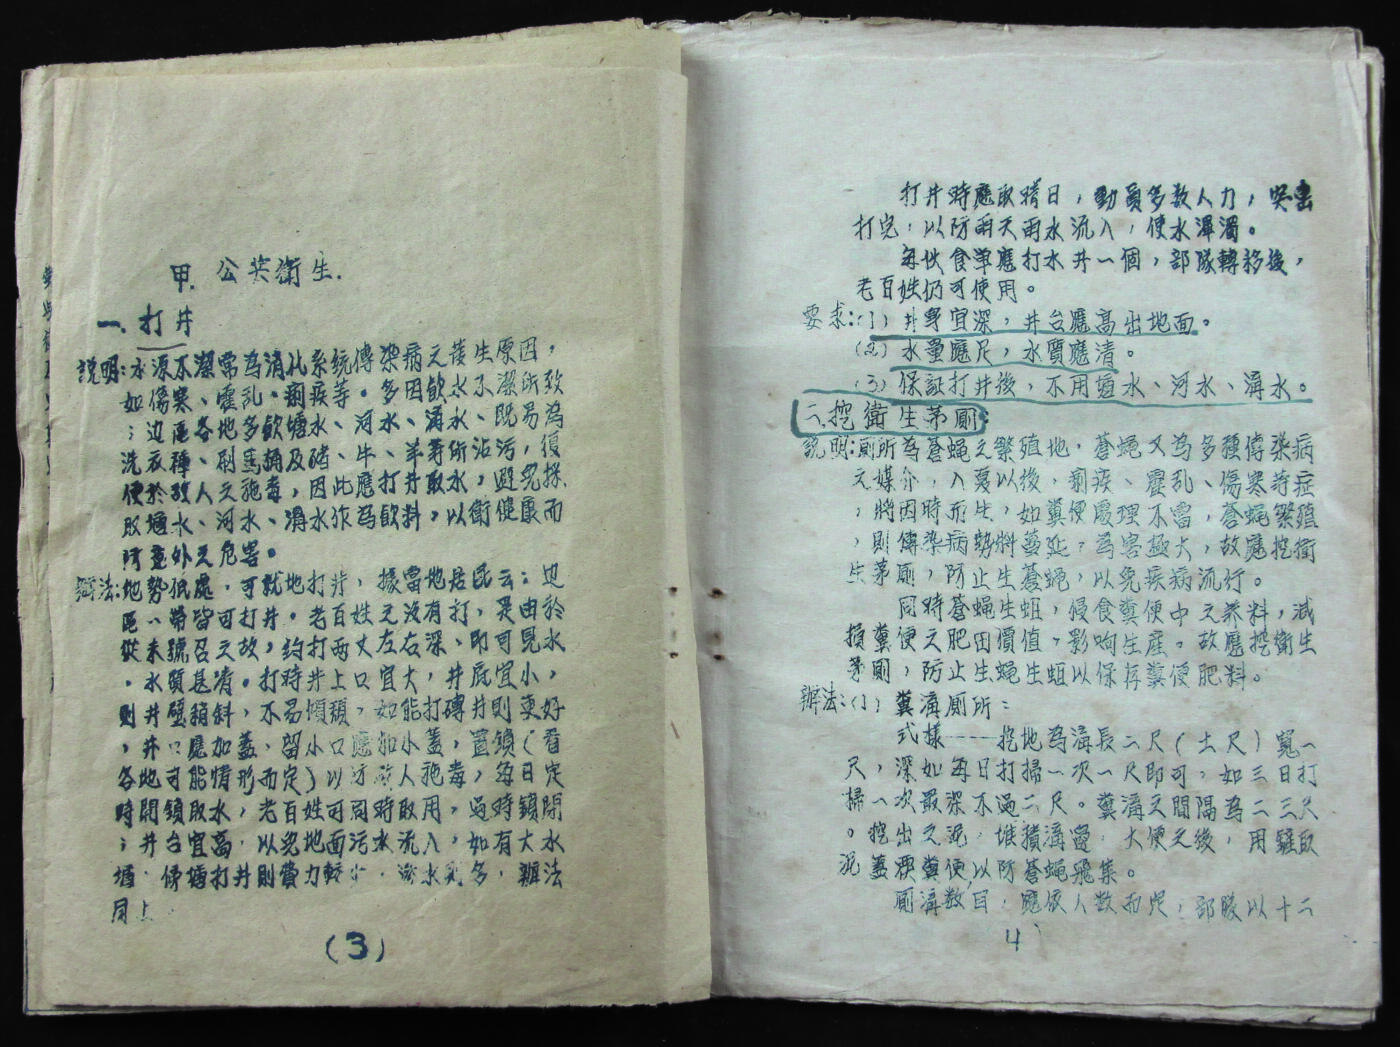 甲. 公共衛生.
一、打井
説明:水源不潔常為消化系統傳染病之發生原因，
如傷寒、霍乱、痢疾等。多因飲水不潔所致
；边區各地多飲塘水、河水、溝水、既易為
洗衣種、刷馬桶及豬、牛、羊等所沾污，復
便於敌人之施毒，因此應打井取水，避免採
取塘水、河水、溝水作為飲料，以衛健康而
防意外之危害。
辦法:地勢低處，可就地打井，據當地居民云：边
區一帶皆可打井。老百姓之没有打，是由於
從未號召之故，約打两丈左右深、即可見水
。水頭甚清。打時井上口宜大，井底宜小，
則井壁稍斜，不易傾頽，如能打磚井則更好
，井口應加蓋，留小口應加小蓋，置鎖（看
各地可能情形而定）以防敌人施毒，每日定
時開鎖取水，老百姓可同時取用，過時鎖閉
；井台宜高，以免地面污水流入，如有大水
塘，傍塘打井則費力較少，滲水則多，辦法
同上
（3）
打井時應取晴日，動員多数人力，突击
打完，以防雨天雨水流入，使水渾濁。
每伙食單應打水井一個，部隊轉移後，
老百姓仍可使用。
要求:(1) 井身宜深，井台應高出地面。
(2) 水量應足，水質應清。
(3) 保証打井後，不用塘水、河水、溝水。
二、挖衛生茅廁:
説明:廁所為蒼蝇之繁殖地，蒼蝇又為多種傳染病
之媒介，入夏以後，痢疾、霍乱、傷寒等症
，將因時而生，如糞便處理不當，蒼蝇繁殖
，則傳染病勢將蔓延，為害極大，故應挖衛
生茅廁，防止生蒼蝇，以免疾病流行。
同時蒼蝇生蛆，侵食糞便中之养料，減
損糞便之肥田價值，影响生産。故應挖衛生
茅廁，防止生蝇生蛆以保存糞便肥料。
辦法:(1) 糞溝廁所：
式樣——挖地為溝長二尺（土尺）寬一
尺，深如每日打掃一次一尺即可，如三日打
掃一次最深不過二尺。糞溝之間隔為二三尺
。挖出之泥，堆積溝邊，大便之後，用鍬取
泥蓋没糞便，以防蒼蝇飛集。
廁溝数目，應依人数而定，部隊以十二
4